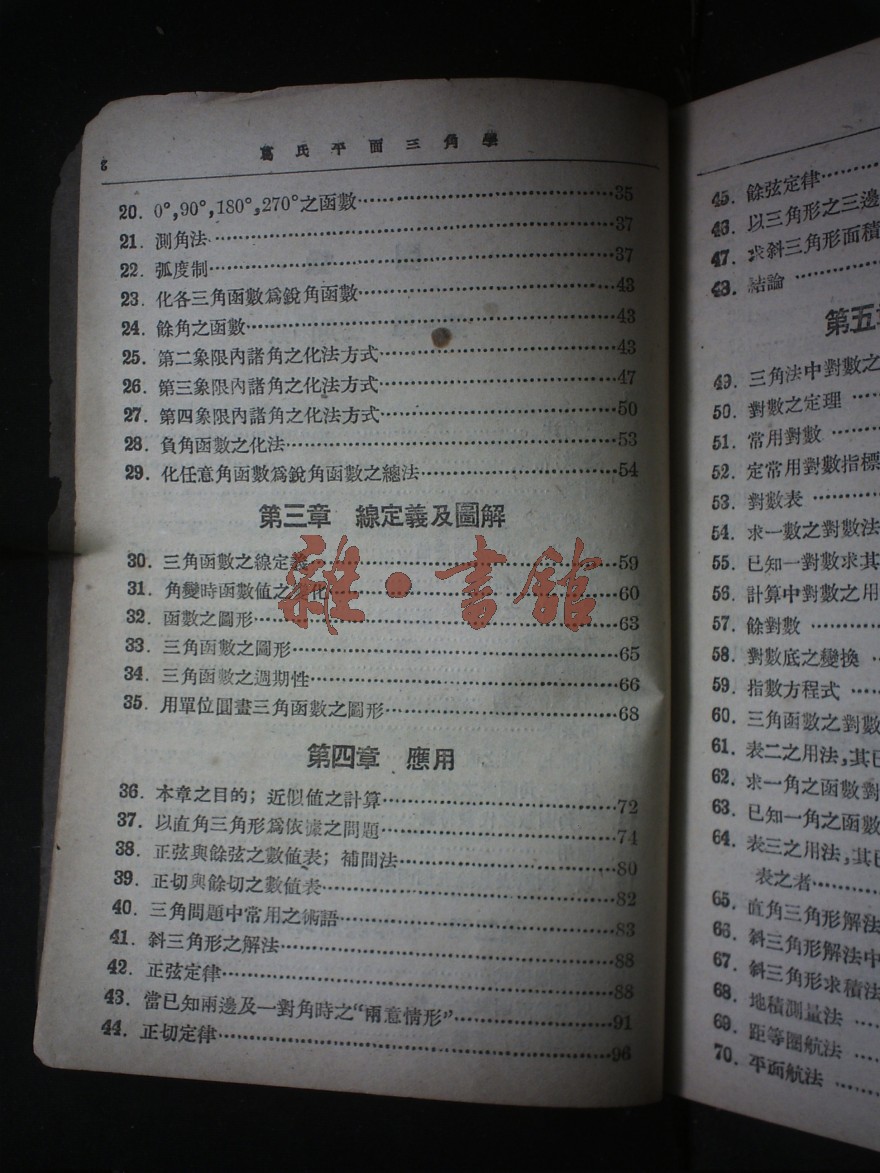 2 葛氏平面三角學
20. 0°,90°,180°,270°之函數……35
21. 測角法……37
22. 弧度制……37
23. 化各三角函數爲銳角函數……43
24. 餘角之函數……43
25. 第二象限內諸角之化法方式……43
26. 第三象限內諸角之化法方式……47
27. 第四象限內諸角之化法方式……50
28. 負角函數之化法……53
29. 化任意角函數爲銳角函數之總法……54
第三章 線定義及圖解
30. 三角函數之線定義……59
31. 角變時函數值之變化……60
32. 函數之圖形……63
33. 三角函數之圖形……65
34. 三角函數之週期性……66
35. 用單位圓畫三角函數之圖形……68
雜·書館
第四章 應用
36. 本章之目的; 近似值之計算……72
37. 以直角三角形爲依據之問題……74
38. 正弦與餘弦之數值表; 補間法……80
39. 正切與餘切之數值表……82
40. 三角問題中常用之術語……83
41. 斜三角形之解法……88
42. 正弦定律……88
43. 當已知兩邊及一對角時之“兩意情形”……91
44. 正切定律……96
45. 餘弦定律……
46. 以三角形之三邊
47. 求斜三角形面積
48. 結論……
第五章
49. 三角法中對數之
50. 對數之定理……
51. 常用對數……
52. 定常用對數指標
53. 對數表……
54. 求一數之對數法
55. 已知一對數求其
56. 計算中對數之用
57. 餘對數……
58. 對數底之變換……
59. 指數方程式……
60. 三角函數之對數
61. 表二之用法,其已
62. 求一角之函數對
63. 已知一角之函數
64. 表三之用法,其已
表之者……
65. 直角三角形解法
66. 斜三角形解法中
67. 斜三角形求積法
68. 地積測量法……
69. 距等圈航法……
70. 平面航法……